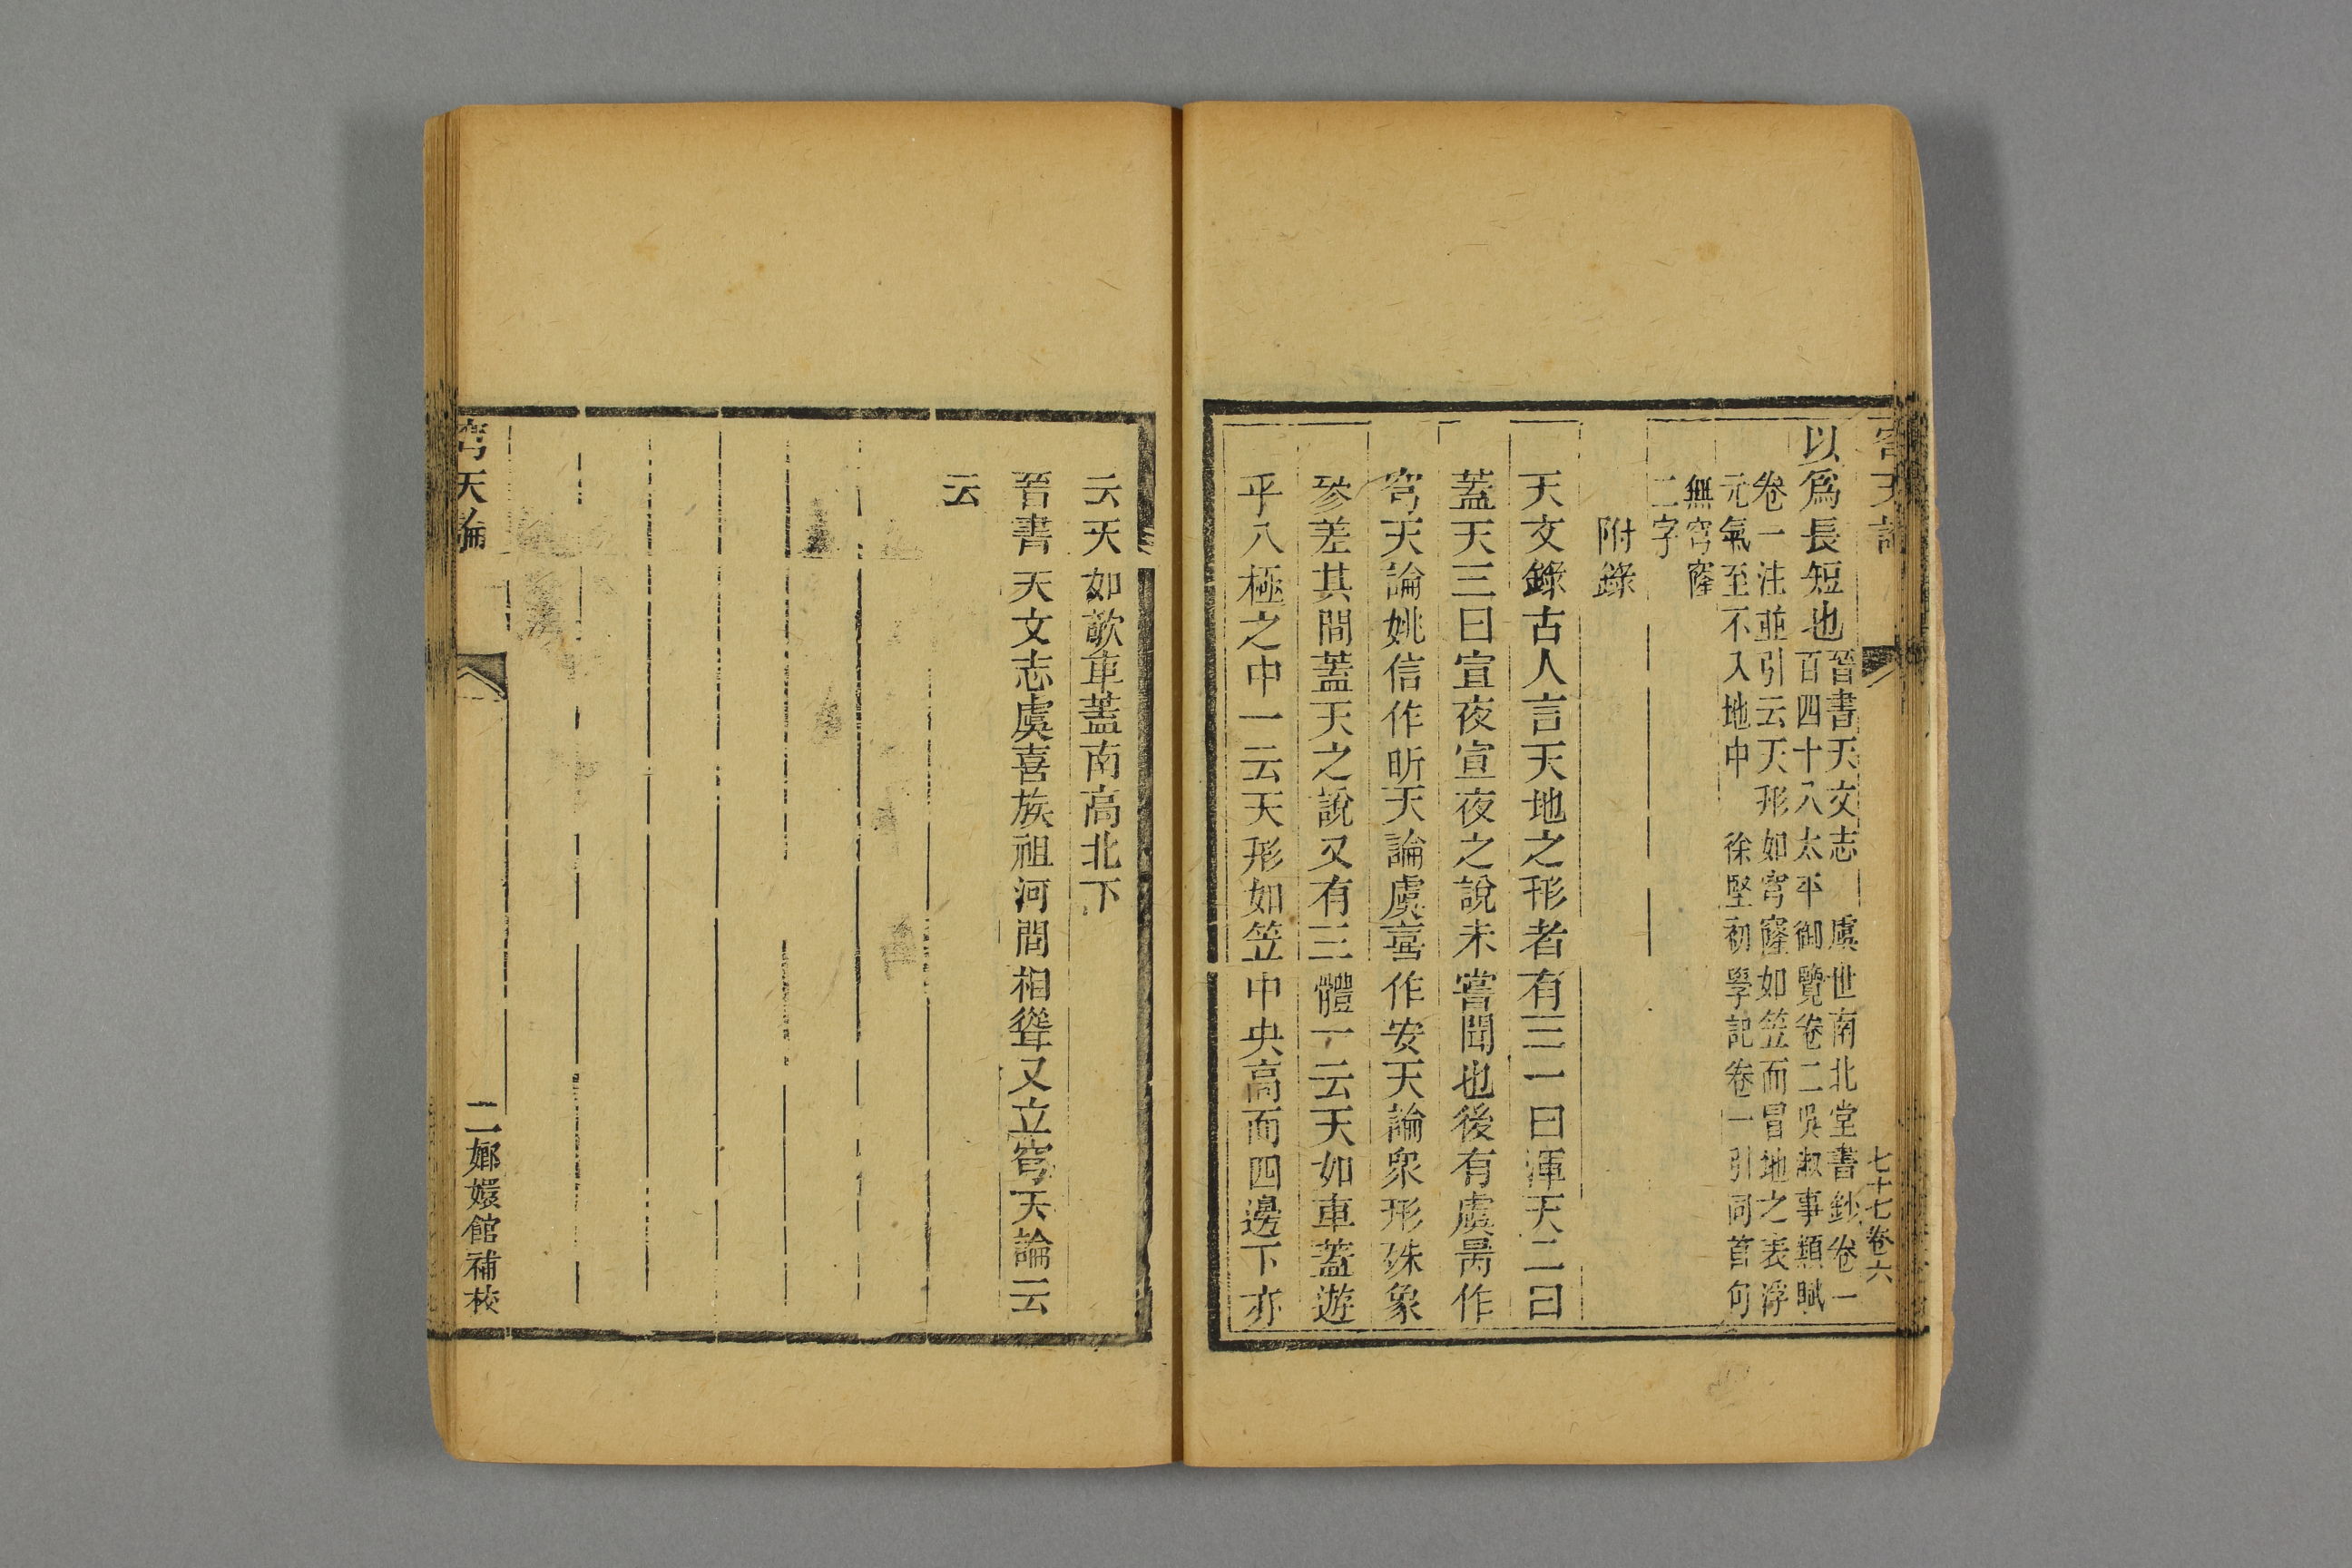 穹天論
七十七卷六
以爲長短也晉書天文志 虞世南北堂書鈔卷一
百四十八太平御覽卷二吳淑事類賦
卷一注並引云天形如穹窿如笠而冒地之表浮
元氣至不入地中 徐堅初學記卷一引同首句
無穹窿
二字
附錄
天文錄古人言天地之形者有三一曰渾天二曰
蓋天三曰宣夜宣夜之說未嘗聞也後有虞昺作
穹天論姚信作昕天論虞喜作安天論衆形殊象
參差其間蓋天之說又有三體一云天如車蓋遊
乎八極之中一云天形如笠中央高而四邊下亦
云天如欹車蓋南高北下
晉書天文志虞喜族祖河間相聳又立穹天論云
云
穹天論
二
嫏嬛館補校